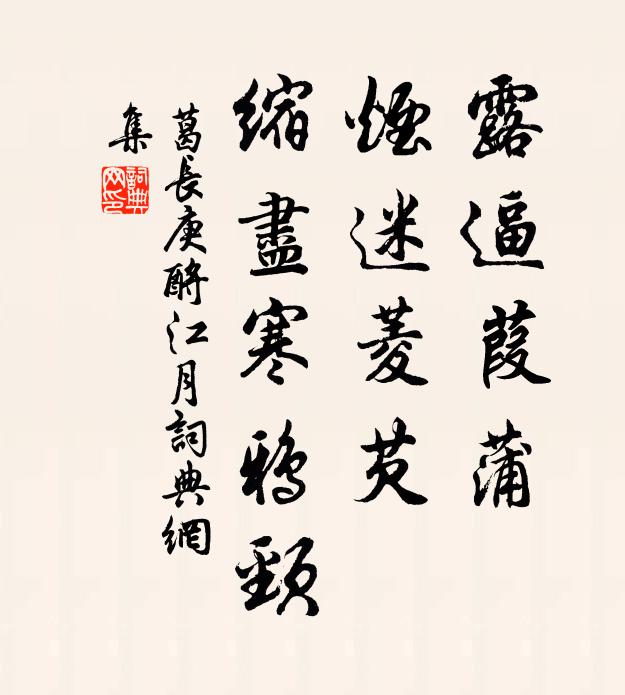 露逼葭蒲
煙迷菱芡
縮盡寒鴉頸
葛長庚酹江月詞典網
集
詞典
网印